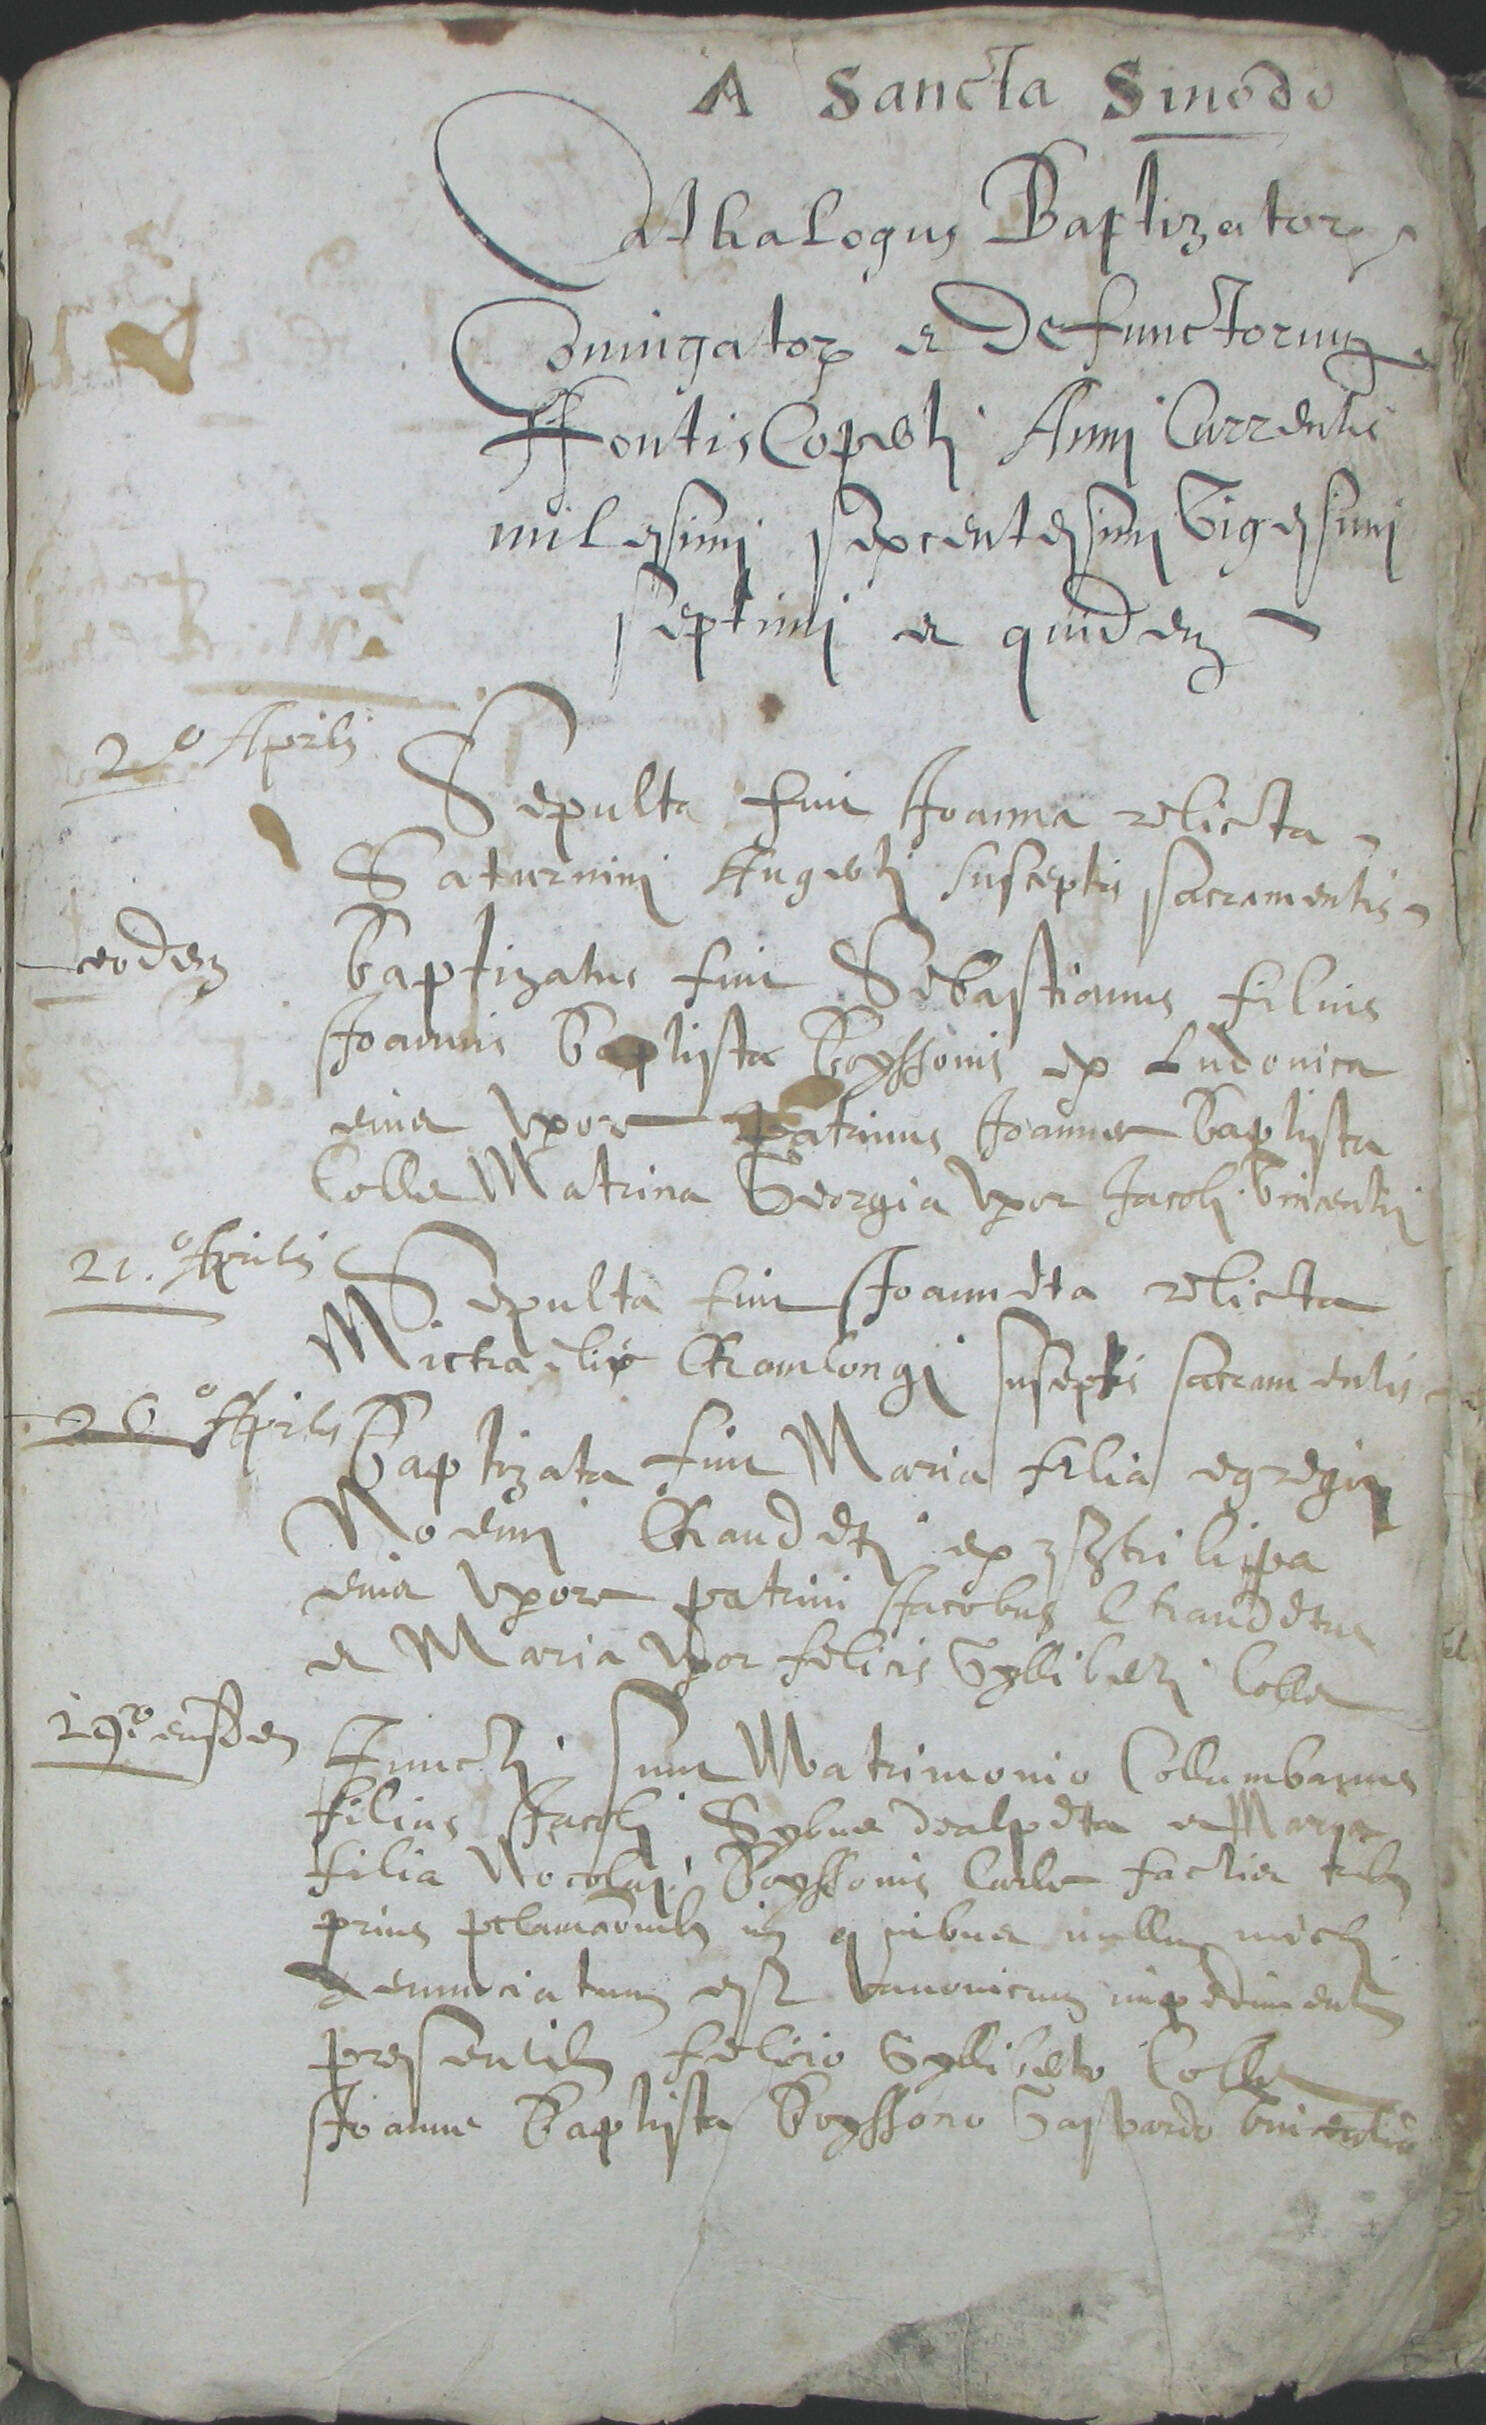 A Sancta Sinodo
Cathalogus Baptizator
Coniugator et Defunctorum
Fontis Coperti Anni Currentis
milesimi sexcentesimi Vigesimi
septimi et quidem
2º Aprilis
Sepulta fuit Joanna relicta
Saturnini Hugueti susceptis sacramentis
eodem
Baptizatus fuit Sebastianus filius
Joannis Baptista Boyssonis ex Ludovica
eius uxore patrinus Joannes Baptista
Colla Matrina Georgia uxor Jacobi Vincentii
21º Aprilis
Sepulta fuit Joanneta relicta
Michaelis Chamlongi susceptis sacramentis
26º Aprilis
Baptizata fuit Maria filia egregii
Noemi Chaudeti ex philippa
eius uxore patrini Jacobus Chaudetus
et Maria uxor felicis Gylliberti Colla
29º eiusdem
Juncti sunt Matrimonio Collumbanus
filius Jacobi Sybue dealpeta et Maria
filia Nocolai Boyssonis factis trib
prius pclamaonib in quibus nullum michi
denunciatum est canonicum impedimentum
presentib felicio Gylliberto Colla
Joanne Baptista Boyssono Gaspardo Vincentio